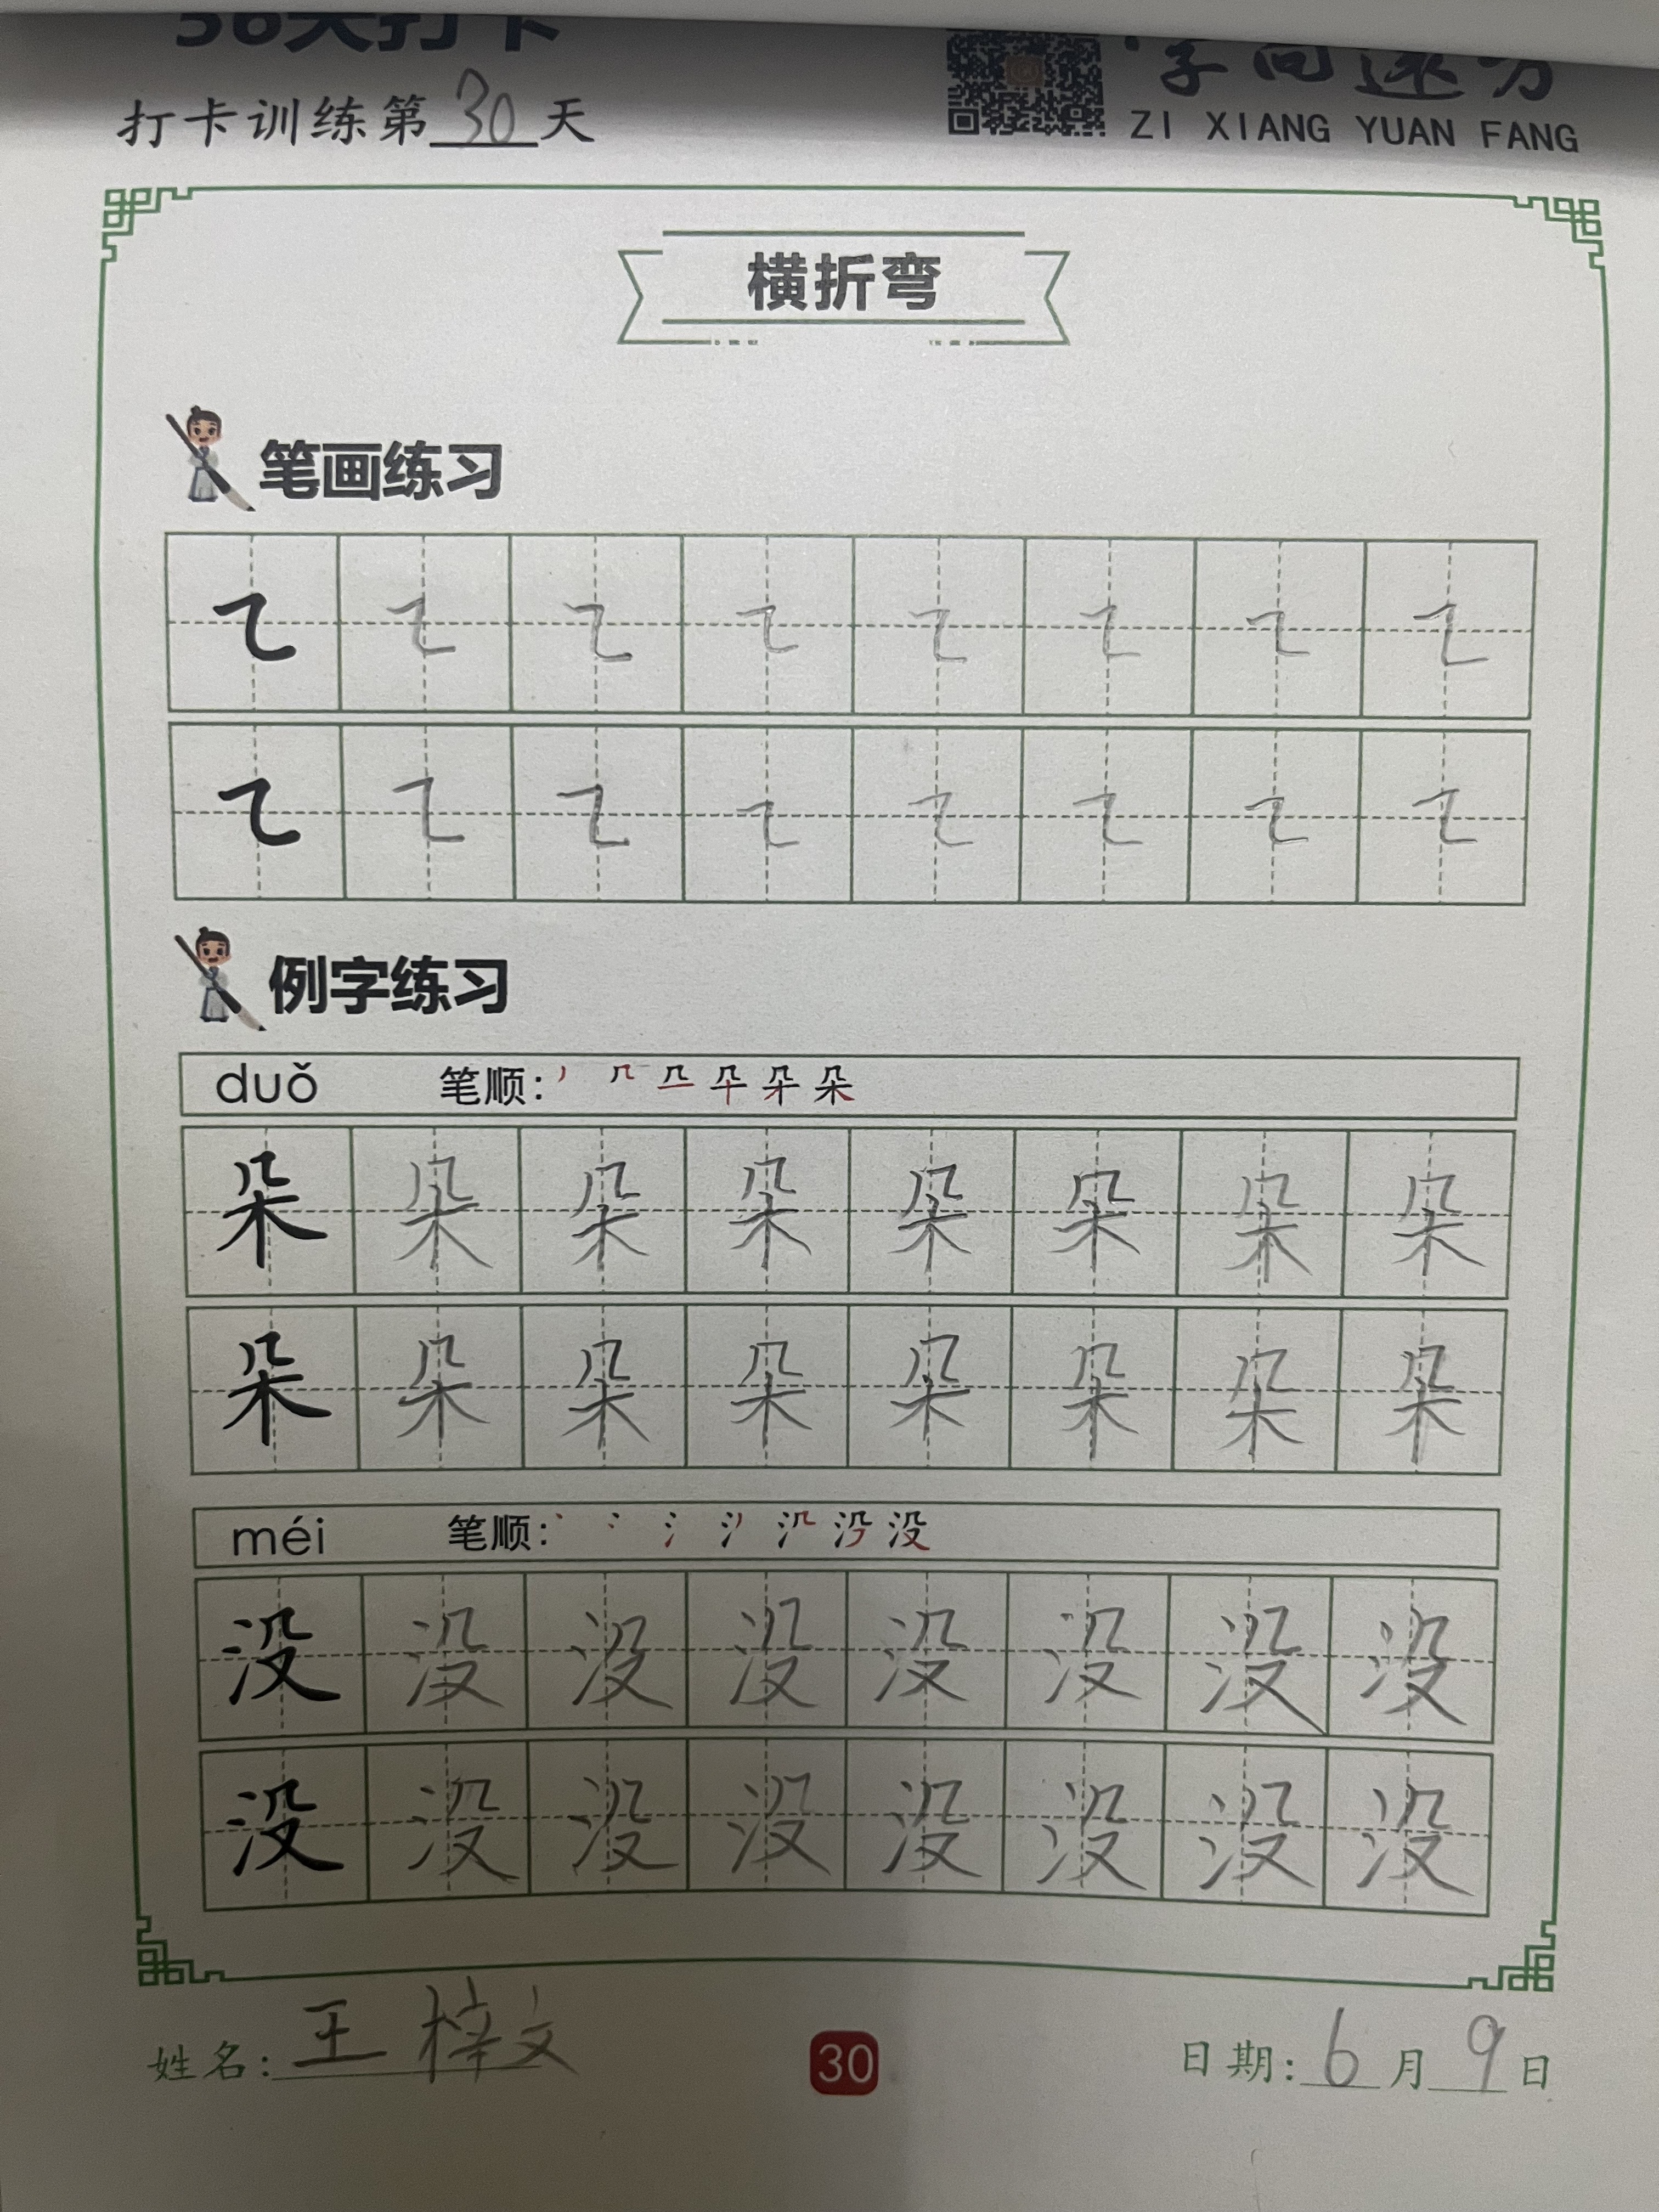 打卡训练第30天
ZI XIANG YUAN FANG
横折弯
笔画练习
㇍ ㇍ ㇍ ㇍ ㇍ ㇍ ㇍ ㇍
㇍ ㇍ ㇍ ㇍ ㇍ ㇍ ㇍ ㇍
例字练习
duǒ 笔顺: 朵
朵 朵 朵 朵 朵 朵 朵 朵
朵 朵 朵 朵 朵 朵 朵 朵
méi 笔顺: 没
没 没 没 没 没 没 没 没
没 没 没 没 没 没 没 没
姓名: 王梓文 30 日期: 6月9日